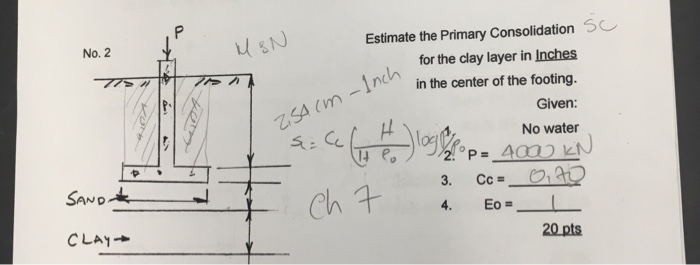 No. 2
P
M & N
Estimate the Primary Consolidation Sc
for the clay layer in Inches
in the center of the footing.
2,54 cm - Inch
Given:
No water
2. P = 4000 kN
3. Cc = 0,70
4. Eo = 1
20 pts
SAND
Ch 7
CLAY